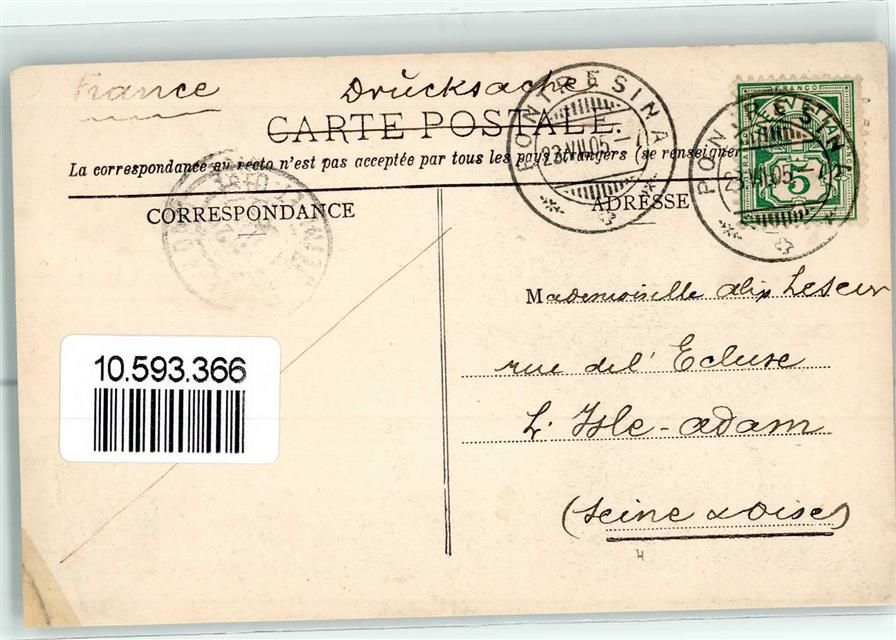 France Drucksache
CARTE POSTALE
La correspondance au recto n'est pas acceptée par tous les pays étrangers (se renseigner
PONTRESINA
23.VII.05
PONTRESINA
23.VII.05
FRANCO
HELVETIA
5
CORRESPONDANCE
ADRESSE
Mademoiselle Alix Leseur
rue de l'Ecluse
L'Isle-Adam
(Seine & Oise)
10.593.366
H